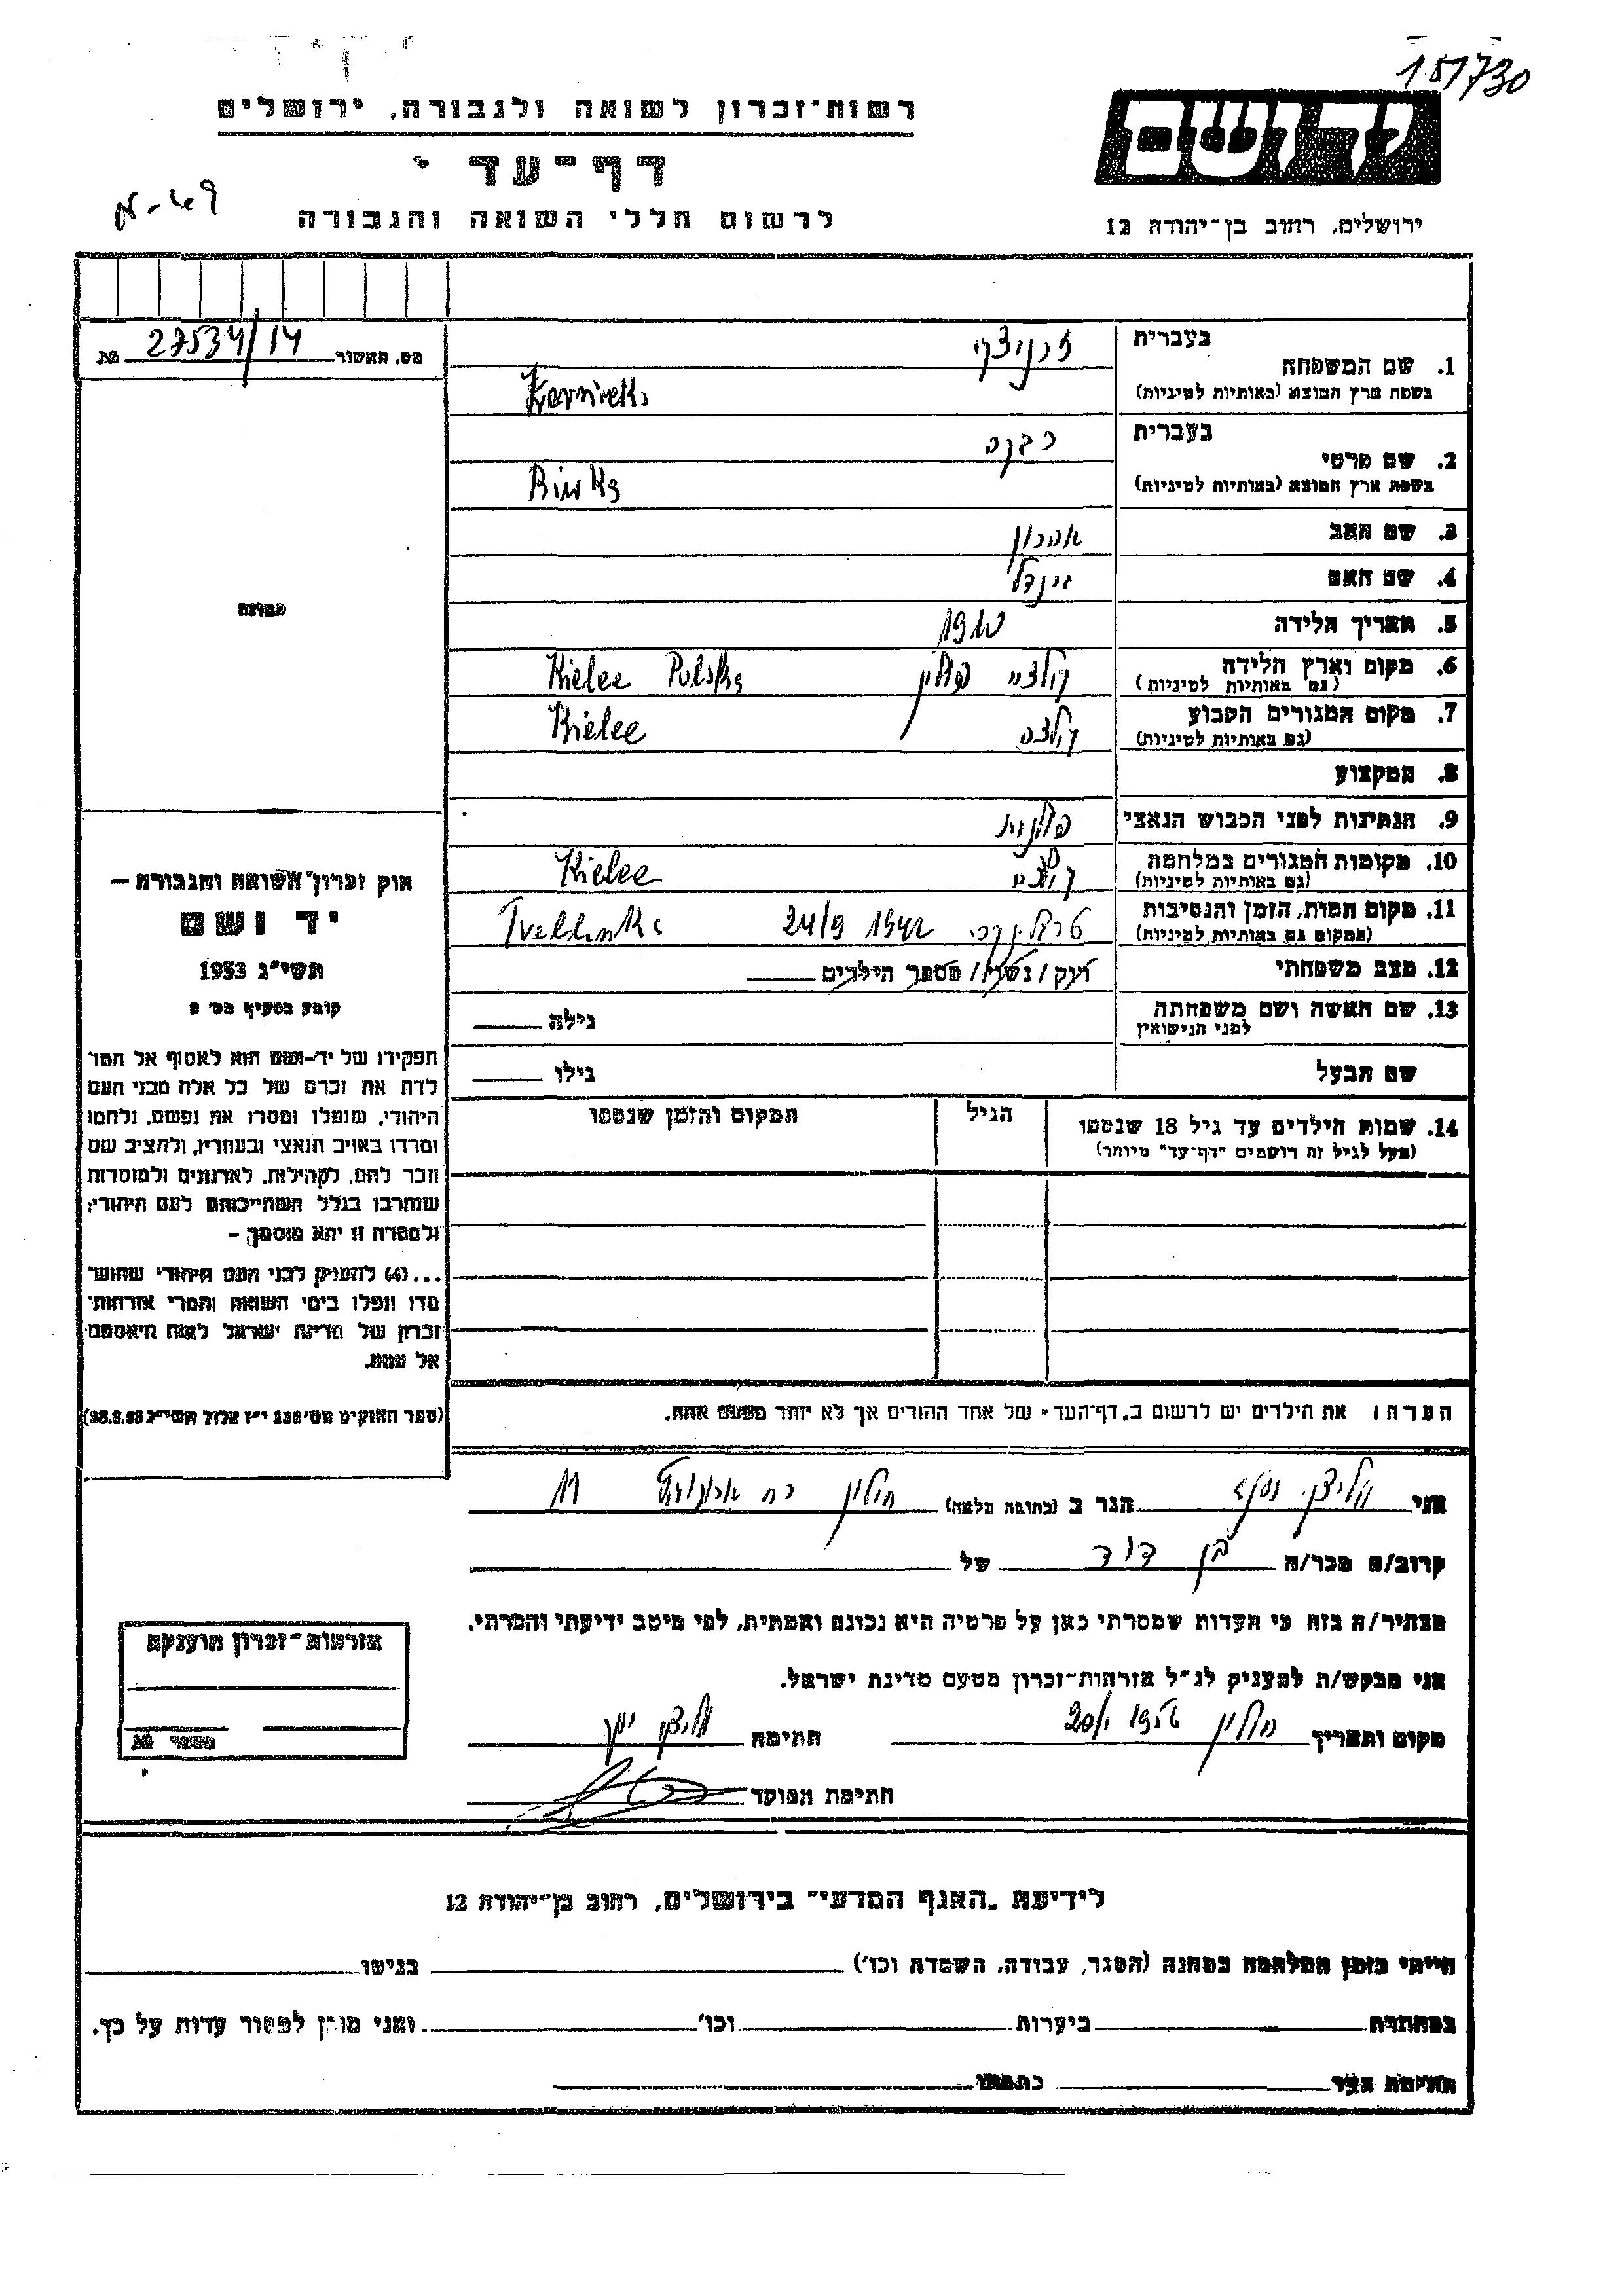 151730
רשות־זכרון לשואה ולגבורה, ירושלים
דף־עד
לרשום חללי השואה והגבורה
יד ושם
ירושלים, רחוב בן־יהודה 12
מס. האשור 27534/14 №
בעברית
1. שם המשפחה
בשפת ארץ המוצא (באותיות לטיניות)
בעברית רבקה
2. שם פרטי
בשפת ארץ המוצא (באותיות לטיניות) Riwka
3. שם האב אהרון
4. שם האם הינדל
5. תאריך הלידה 1910
6. מקום וארץ הלידה קילצה פולין Kielce Polska
(גם באותיות לטיניות)
7. מקום המגורים הקבוע קילצה Kielce
(גם באותיות לטיניות)
8. המקצוע
9. הנתינות לפני הכבוש הנאצי פולנית
10. מקומות המגורים במלחמה קילצה Kielce
(גם באותיות לטיניות)
11. מקום המות, הזמן והנסיבות טרבלינקה 24/9 1942 Treblinka
(המקום גם באותיות לטיניות)
12. מצב משפחתי רוק/נשוי/ מספר הילדים
13. שם האשה ושם משפחתה
לפני הנישואין
גילה
שם הבעל
גילו
14. שמות הילדים עד גיל 18 שנספו
(מעל לגיל זה רושמים "דף־עד" מיוחד)
הגיל
המקום והזמן שנספו
הערה: את הילדים יש לרשום ב"דף־העד" של אחד ההורים אך לא יותר מפעם אחת.
תמונה
חוק זכרון השואה והגבורה —
יד ושם
תשי"ג 1953
קובע בסעיף מס' 2
תפקידו של יד־ושם הוא לאסוף אל המו־
לדת את זכרם של כל אלה מבני העם
היהודי, שנפלו ומסרו את נפשם, נלחמו
ומרדו באויב הנאצי ובעוזריו, ולהציב שם
וזכר להם, לקהילות, לארגונים ולמוסדות
שנחרבו בגלל השתייכותם לעם היהודי;
ולמטרה זו יהא מוסמך —
...(4) להעניק לבני העם היהודי שהוש־
מדו ונפלו בימי השואה והמרי אזרחות־
זכרון של מדינת ישראל לאות היאספם
אל עמם.
(ספר החוקים מס' 132 י"ז אלול תשי"ג 28.8.53)
אני
הגר ב (כתובת מלאה) חולון 11
קרוב/ה מכר/ה בן דוד של
מצהיר/ה בזה כי העדות שמסרתי כאן על פרטיה היא נכונה ואמתית, לפי מיטב ידיעתי והכרתי.
אני מבקש/ת להעניק לנ"ל אזרחות־זכרון מטעם מדינת ישראל.
מקום ותאריך חולון
חתימה
חתימת הפוקד
אזרחות־זכרון מוענקת
מספר №
לידיעת "האגף המדעי" בירושלים, רחוב בן־יהודה 12
הייתי בזמן המלחמה במחנה (הסגר, עבודה, השמדה וכו') בגיטו
במחתרת ביערות וכו' ואני מוכן למסור עדות על כך.
חתימת העד כתבתו